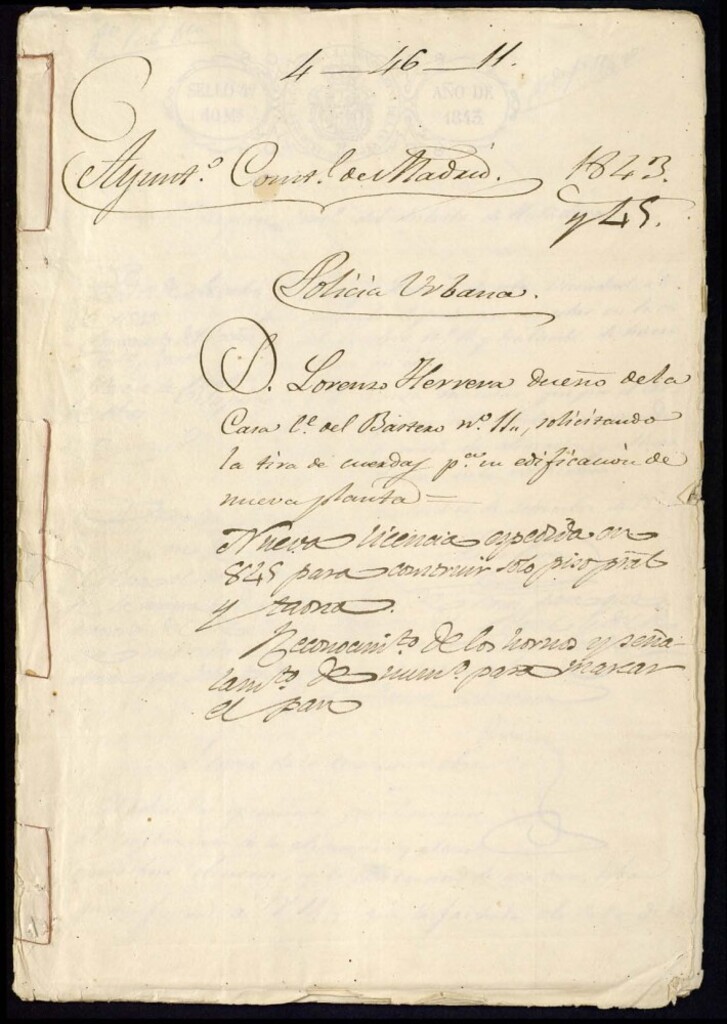 4 — 46 — 11.
Ayunt.º Const.l de Madrid. 1843.
y 45.
Policia Urbana.
D. Lorenzo Herrera dueño de la
Casa C.e del Bastero n.º 11,, solicitando
la tira de cuerdas p.a su edificacion de
nueva planta =
Nueva licencia espedida en
845 para construir solo piso pral
y taona.
Reconocim.to de los hornos y seña-
lam.to de num.o para marcar
el pan
SELLO 4º
AÑO DE
1843